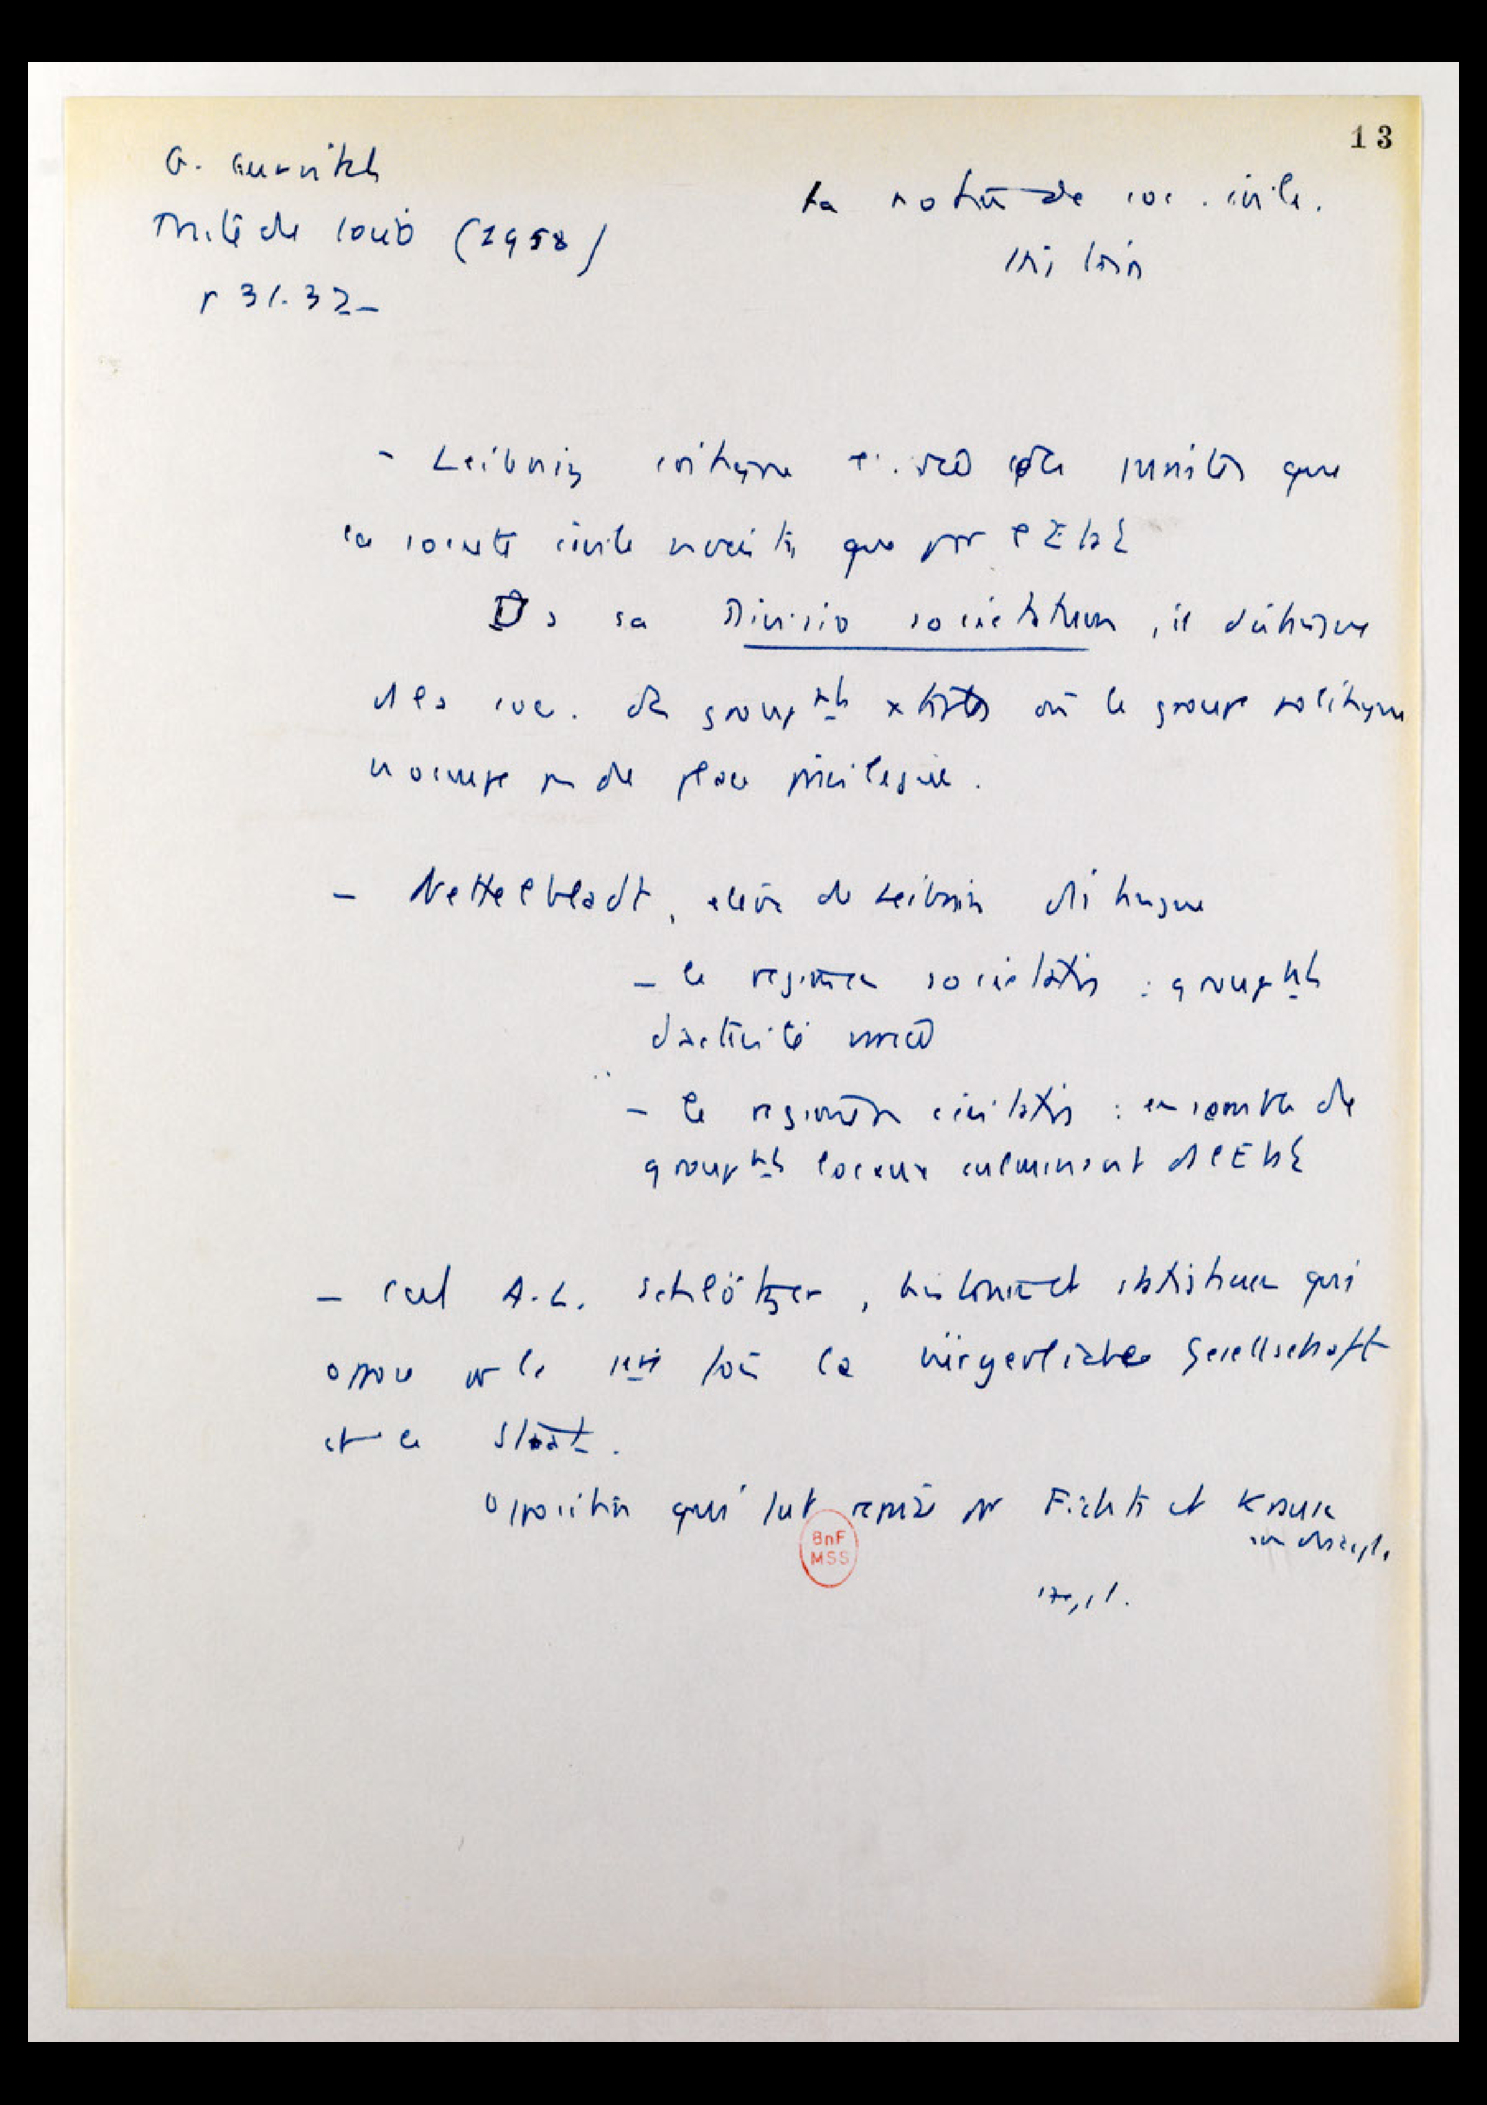 13
G. Gurvitch
Traité de socio (1958)
p 31.32-
La notion de soc. civile.
- Leibniz critique que
la société civile n'existe que par l'État
Ds sa Divisio societatum, il distingue
des soc. de groupts où le groupe politique
n'occupe pas de place privilégiée.
- Nettelbladt, élève de Leibniz distingue
- le regimen societatis : groupts
d'activité
- le regimen civitatis : ensemble de
groupts locaux culminant ds l'État
- C'est A.L. Schlötzer, historien et statisticien qui
oppose pr la 1ère fois la bürgerliche Gesellschaft
et le Staat.
Opposition qui fut reprise par Fichte et Krause
son disciple
BnF
MSS